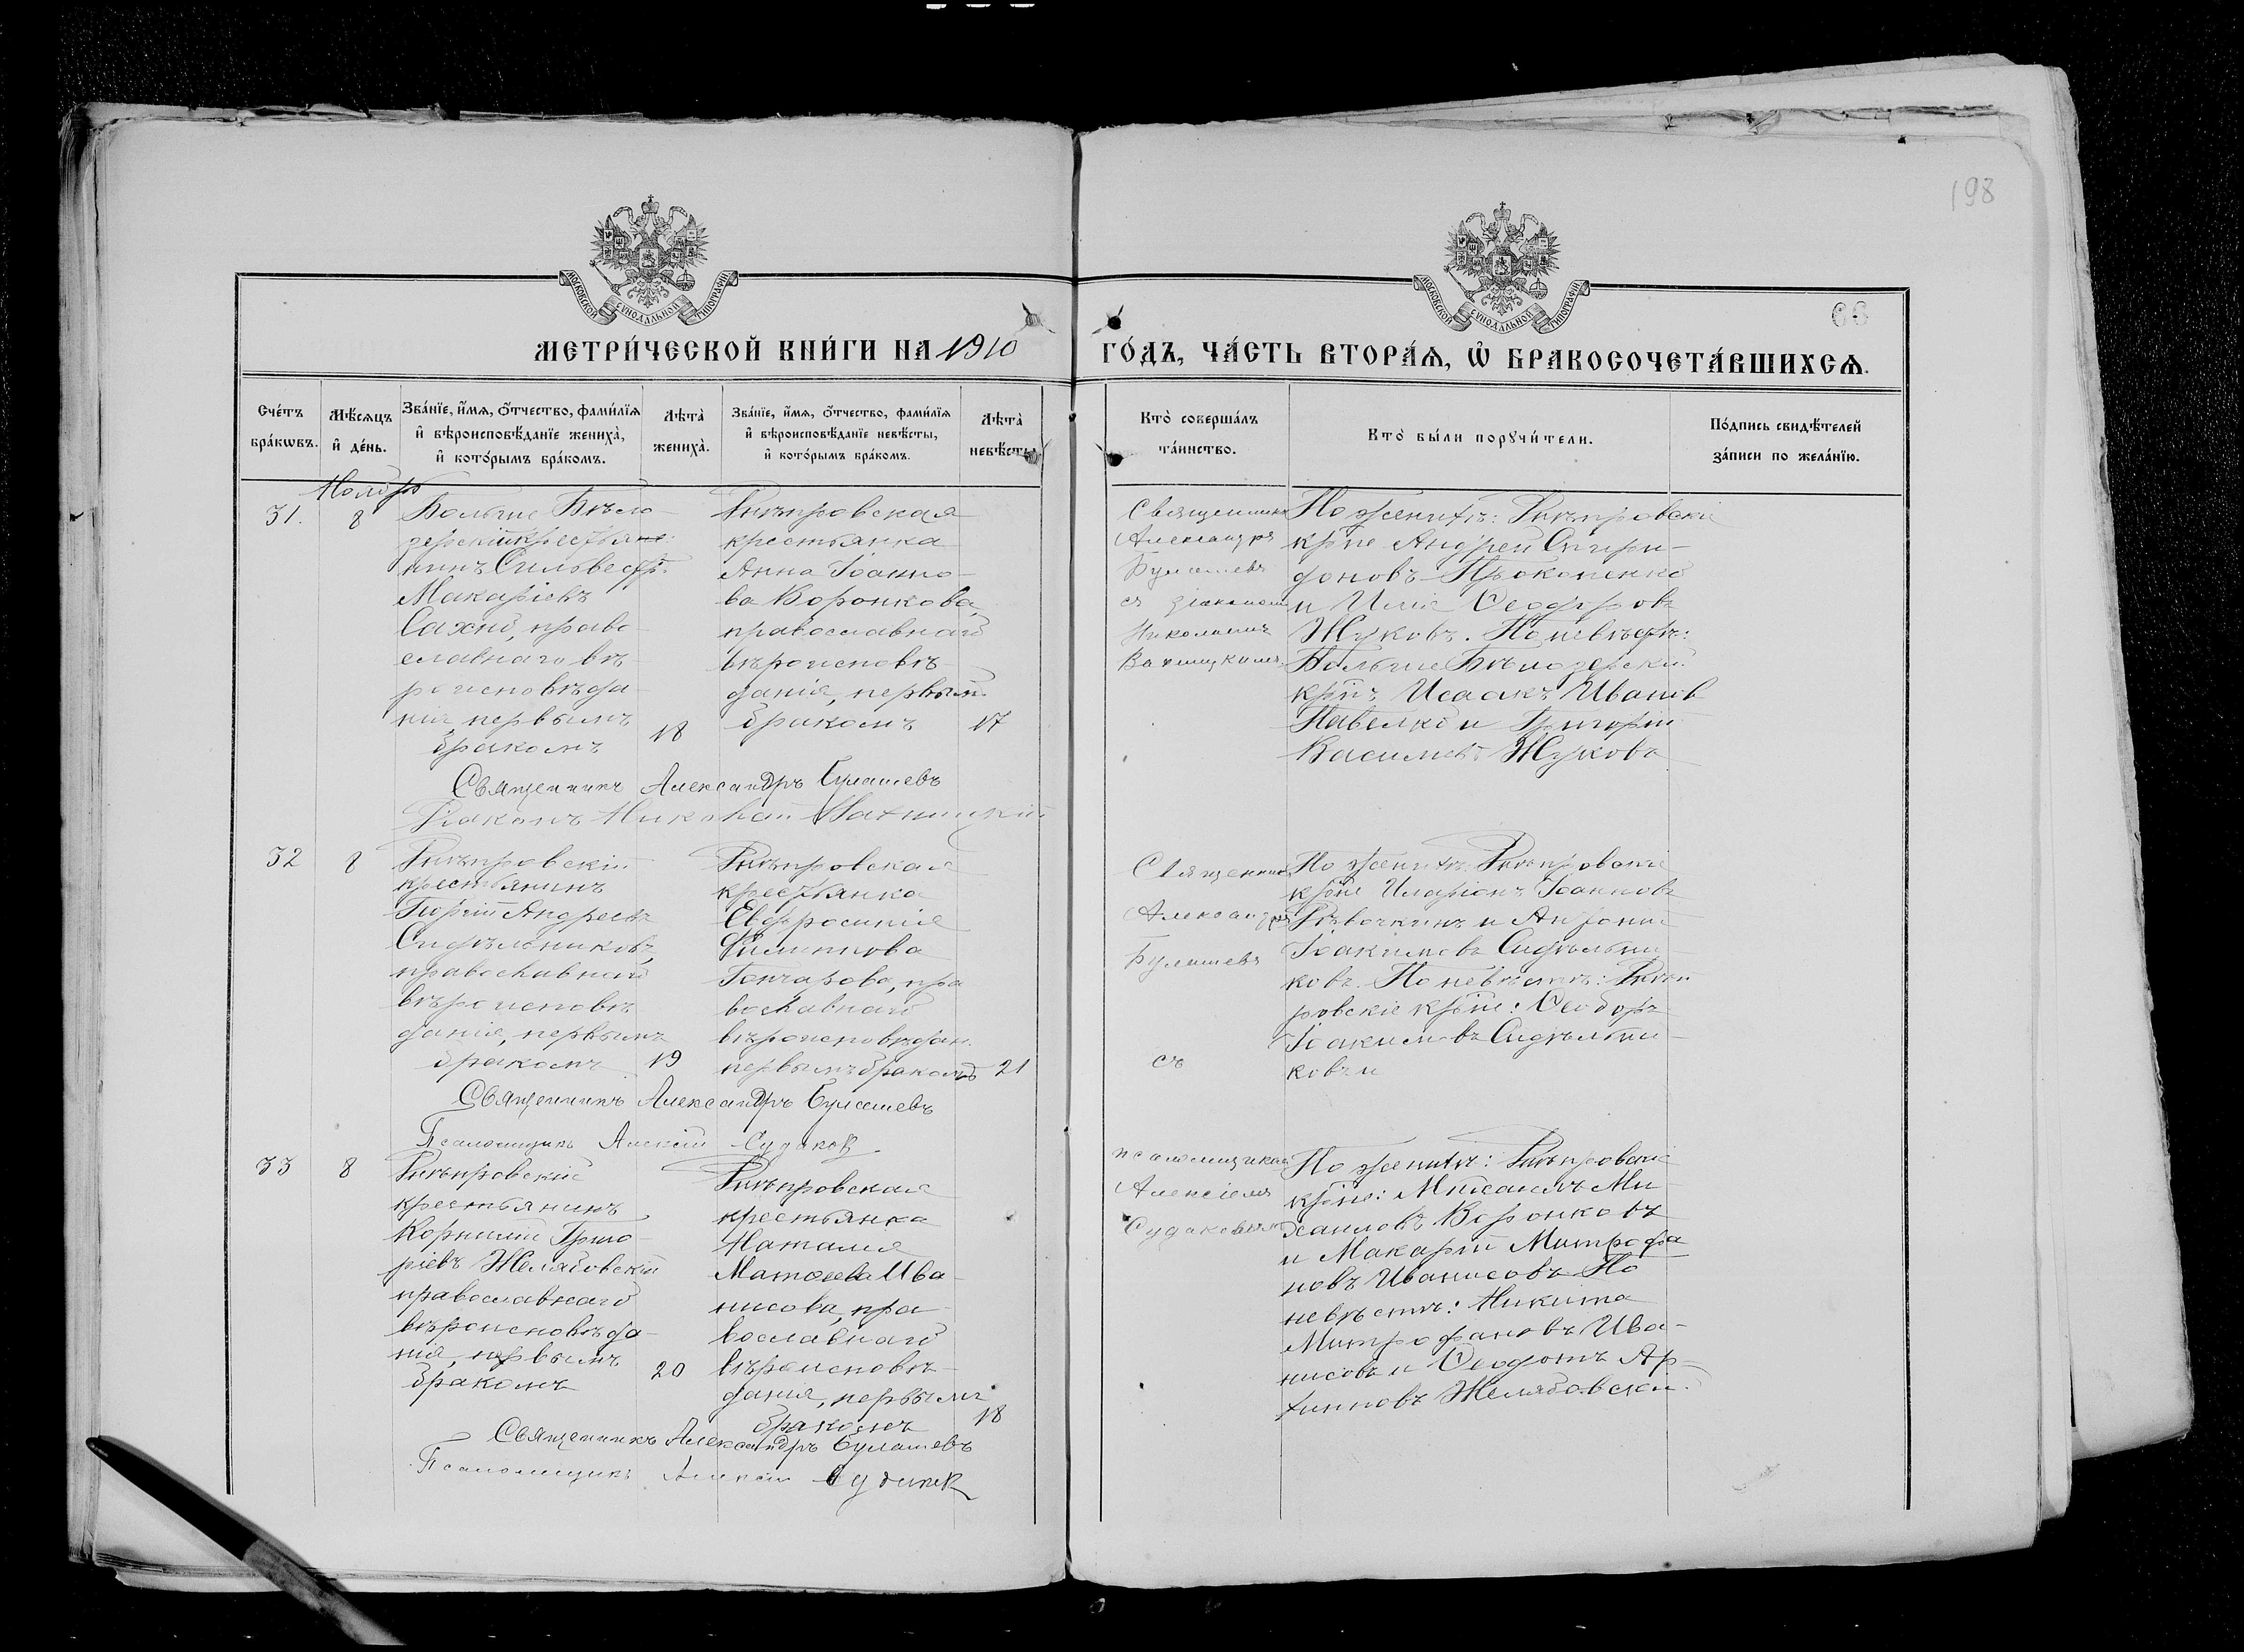 198
МОСКОВСКОЙ СѴНОДАЛЬНОЙ ТИПОГРАФІИ
МОСКОВСКОЙ СѴНОДАЛЬНОЙ ТИПОГРАФІИ
66
МЕТРИ́ЧЕСКОЙ КНИ́ГИ НА 1910 ГО́ДЪ, ЧА́СТЬ ВТОРА́Ѧ, Ѡ҆ БРАКОСОЧЕТА́ВШИХСѦ.
Сче́тъ
бра́кѡвъ.
Мѣ́сѧцъ
и҆ де́нь.
Зва́нїе, и҆́мѧ, ѻ҆́тчество, фами́лїѧ
и҆ вѣроисповѣ́данїе жениха̀,
и҆ кото́рымъ бра́комъ.
Лѣта̀
жениха̀.
Зва́нїе, и҆́мѧ, ѻ҆́тчество, фами́лїѧ
и҆ вѣроисповѣ́данїе невѣ́сты,
и҆ кото́рымъ бра́комъ.
Лѣта̀
невѣ́сты.
Кто̀ соверша́лъ
та́инство.
Кто̀ бы́ли порꙋчи́тели.
По́дпись свидѣ́телей
за́писи по жела́нїю.
Ноябрь
31.
8
Больше Бѣло-
зерскій крестьяни-
нинъ Сильвестръ
Макаріевъ
Сахно, право-
славнаго вѣ-
роисповѣда-
нія, первымъ
бракомъ
18
Днѣпровская
крестьянка
Анна Іоанно-
ва Воронкова,
православнаго
вѣроисповѣ-
данія, первымъ
бракомъ
17
Священникъ
Александръ
Булашевъ
съ діакономъ
Николаемъ
По женихѣ: Днѣпровскіе
крѣне Андрей Спири-
доновъ Прокопенко
и Илія Ѳеодоровъ
Жуковъ. По невѣстѣ:
Больше Бѣлозерскіе
крѣне Исаакъ Ивановъ
Павелко и Григорій
Васильевъ Жуковъ
Священникъ Александръ Булашевъ
Діаконъ Николай
32
8
Днѣпровскій
крестьянинъ
Георгій Андреевъ
Сидѣльниковъ,
православнаго
вѣроисповѣ
данія, первымъ
бракомъ
19
Днѣпровская
крестьянка
Евфросинія
Филиппова
Гончарова, пра
вославнаго
вѣроисповѣдан.
первымъ бракомъ
21
Священникъ
Александръ
Булашевъ
съ
По женихѣ: Днѣпровскіе
крѣне Иларіонъ Іоанновъ
Дѣвочкинъ и Антоній
Іоакимовъ Сидѣльни
ковъ. По невѣстѣ: Днѣп
ровскіе крѣне: Ѳеодоръ
Іоакимовъ Сидѣльни-
ковъ и
Священникъ Александръ Булашевъ
Псаломщикъ Алексій Судаков
33
8
Днѣпровскій
крестьянинъ
Корнилій Григо-
ріевъ Желябовскій
православнаго
вѣроисповѣда-
нія, первымъ
бракомъ
20
Днѣпровская
крестьянка
Наталія
Матѳеева Ива-
нисова, пра-
вославнаго
вѣроисповѣ-
данія, первымъ
бракомъ
18
псаломщикомъ
Алексіемъ
Судаковымъ
По женихѣ: Днѣпровскіе
крѣне: Михаилъ Ми-
хаиловъ Воронковъ
и Макарій Митрофа
новъ Иванисовъ По
невѣстѣ: Никита
Митрофановъ Ива-
нисовъ и Ѳеодотъ Ар-
хиповъ Желябовскій.
Священникъ Александръ Булашевъ
Псаломщикъ Алексій Судаков